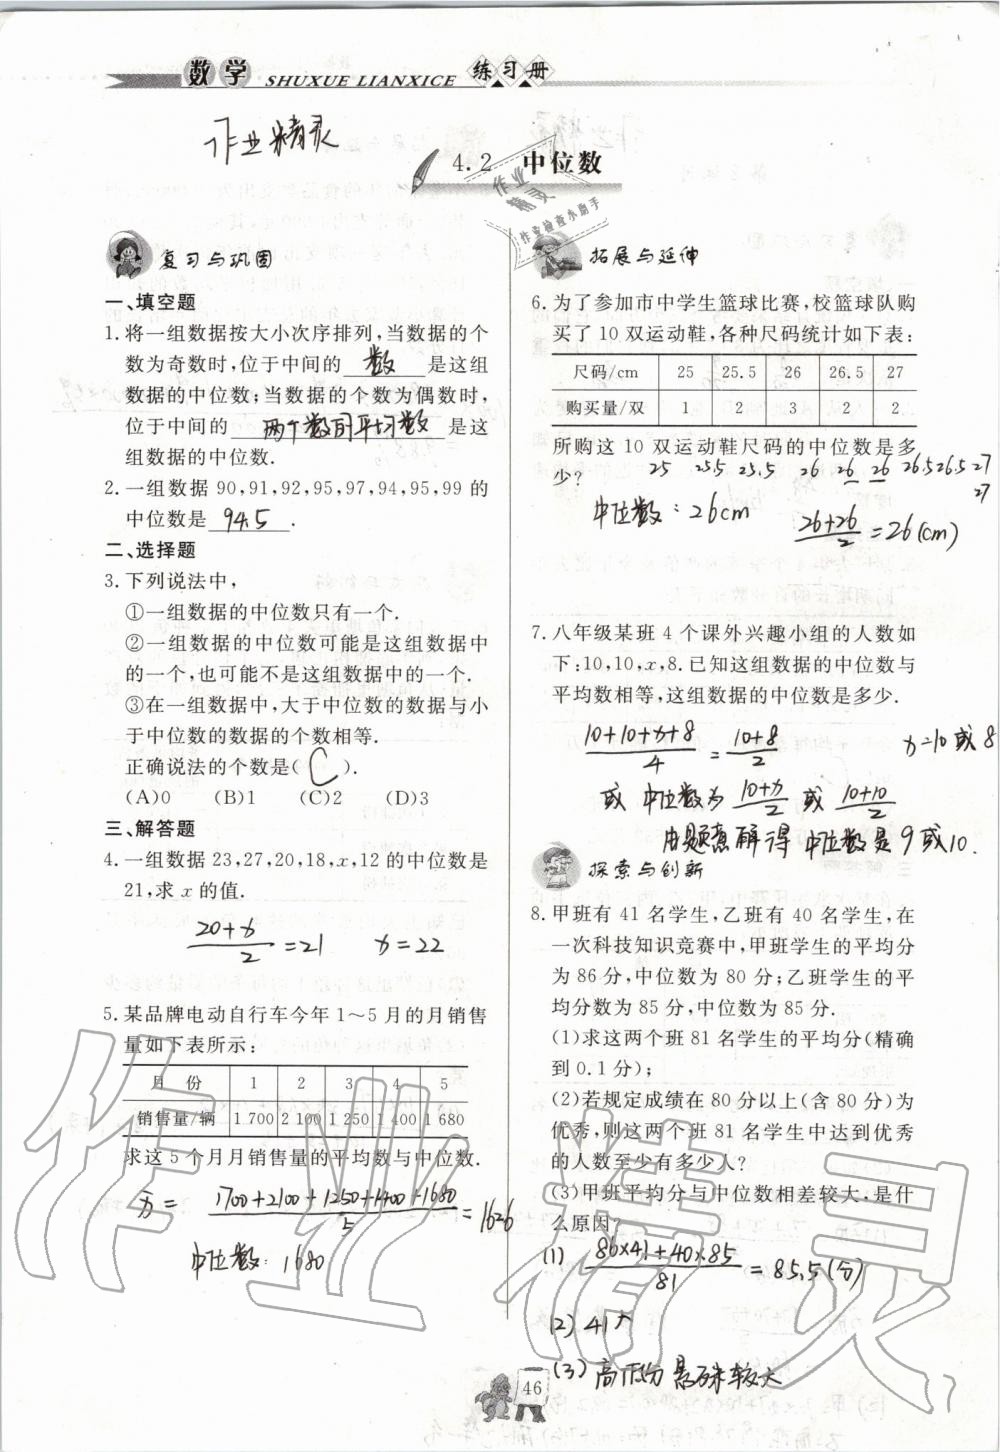 数学
SHUXUE LIANXICE
练习册
作业精灵
4.2 中位数
作业
精灵
作业检查小助手
复习与巩固
一、填空题
1. 将一组数据按大小次序排列,当数据的个
数为奇数时,位于中间的 数 是这组
数据的中位数;当数据的个数为偶数时,
位于中间的 两个数的平均数 是这
组数据的中位数.
2. 一组数据 90,91,92,95,97,94,95,99 的
中位数是 94.5 .
二、选择题
3. 下列说法中,
①一组数据的中位数只有一个.
②一组数据的中位数可能是这组数据中
的一个,也可能不是这组数据中的一个.
③在一组数据中,大于中位数的数据与小
于中位数的数据的个数相等.
正确说法的个数是( C ).
(A)0 (B)1 (C)2 (D)3
三、解答题
4. 一组数据 23,27,20,18,x,12 的中位数是
21,求 x 的值.
(20+x)/2=21 x=22
5. 某品牌电动自行车今年 1～5 月的月销售
量如下表所示:
月 份 1 2 3 4 5
销售量/辆 1 700 2 100 1 250 1 400 1 680
求这 5 个月月销售量的平均数与中位数.
x̄ = (1700+2100+1250+1400+1680)/5 = 1626
中位数: 1680
拓展与延伸
6. 为了参加市中学生篮球比赛,校篮球队购
买了 10 双运动鞋,各种尺码统计如下表:
尺码/cm 25 25.5 26 26.5 27
购买量/双 1 2 3 2 2
所购这 10 双运动鞋尺码的中位数是多
少?
25 25.5 25.5 26 26 26 26.5 26.5 27
27
中位数: 26cm (26+26)/2=26(cm)
7. 八年级某班 4 个课外兴趣小组的人数如
下:10,10,x,8.已知这组数据的中位数与
平均数相等,这组数据的中位数是多少.
(10+10+x+8)/4 = (10+8)/2 x=10 或 8
或 中位数为 (10+x)/2 或 (10+10)/2
由题意解得 中位数是 9 或 10.
探索与创新
8. 甲班有 41 名学生,乙班有 40 名学生,在
一次科技知识竞赛中,甲班学生的平均分
为 86 分,中位数为 80 分;乙班学生的平
均分数为 85 分,中位数为 85 分.
(1)求这两个班 81 名学生的平均分(精确
到 0.1 分);
(2)若规定成绩在 80 分以上(含 80 分)为
优秀,则这两个班 81 名学生中达到优秀
的人数至少有多少人?
(3)甲班平均分与中位数相差较大,是什
么原因?
(1) (86×41+40×85)/81 = 85.5(分)
(2) 41人
(3) 高低分悬殊较大
46
作业精灵